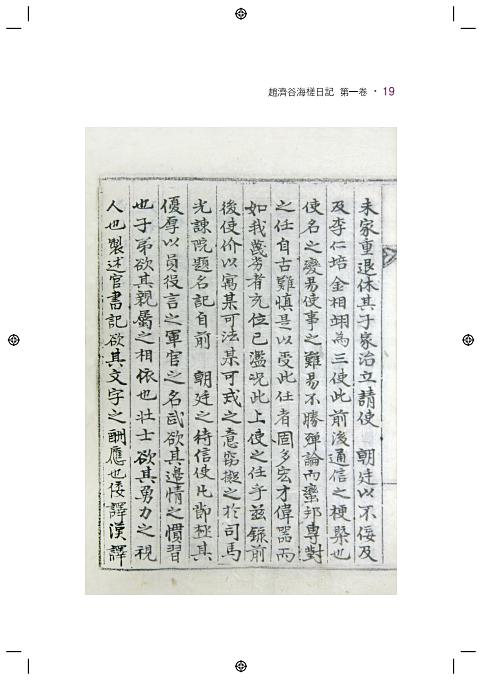 趙濟谷海槎日記 第一卷 · 19
未家重退休其子家治立請使 朝廷以不佞及
及李仁培金相翊為三使此前後通信之梗槩也
使名之變易使事之難易不勝殫論而蠻邦專對
之任自古難慎是以受此任者固多宏才偉器而
如我蔑劣者充位已濫况此上使之任乎玆錄前
後使价以寓某可法某可戎之意竊擬之於司馬
光諫院題名記自前 朝廷之待信使凡節極其
優厚以員役言之軍官之名武欲其邊情之慣習
也子弟欲其親屬之相依也壯士欲其勇力之視
人也製述官書記欲其文字之酬應也倭譯漢譯